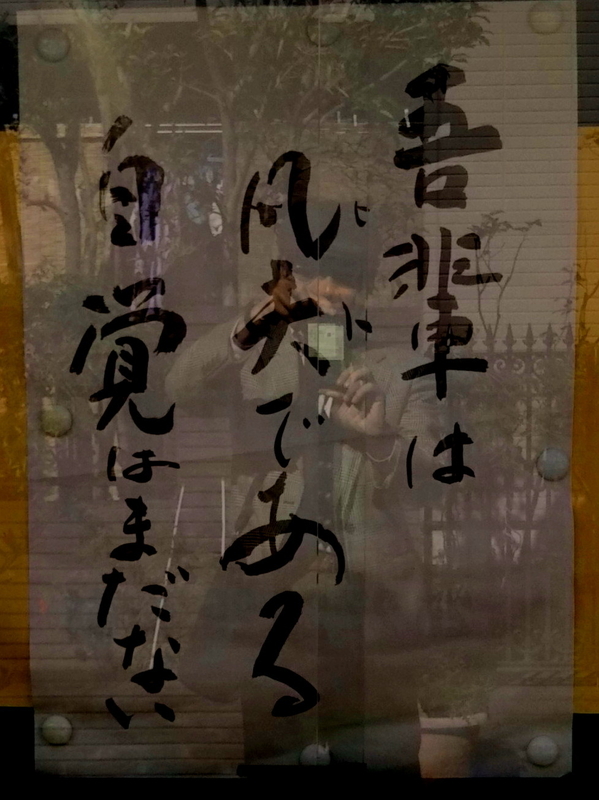 吾輩は
凡夫である
ヒト
自覚はまだない